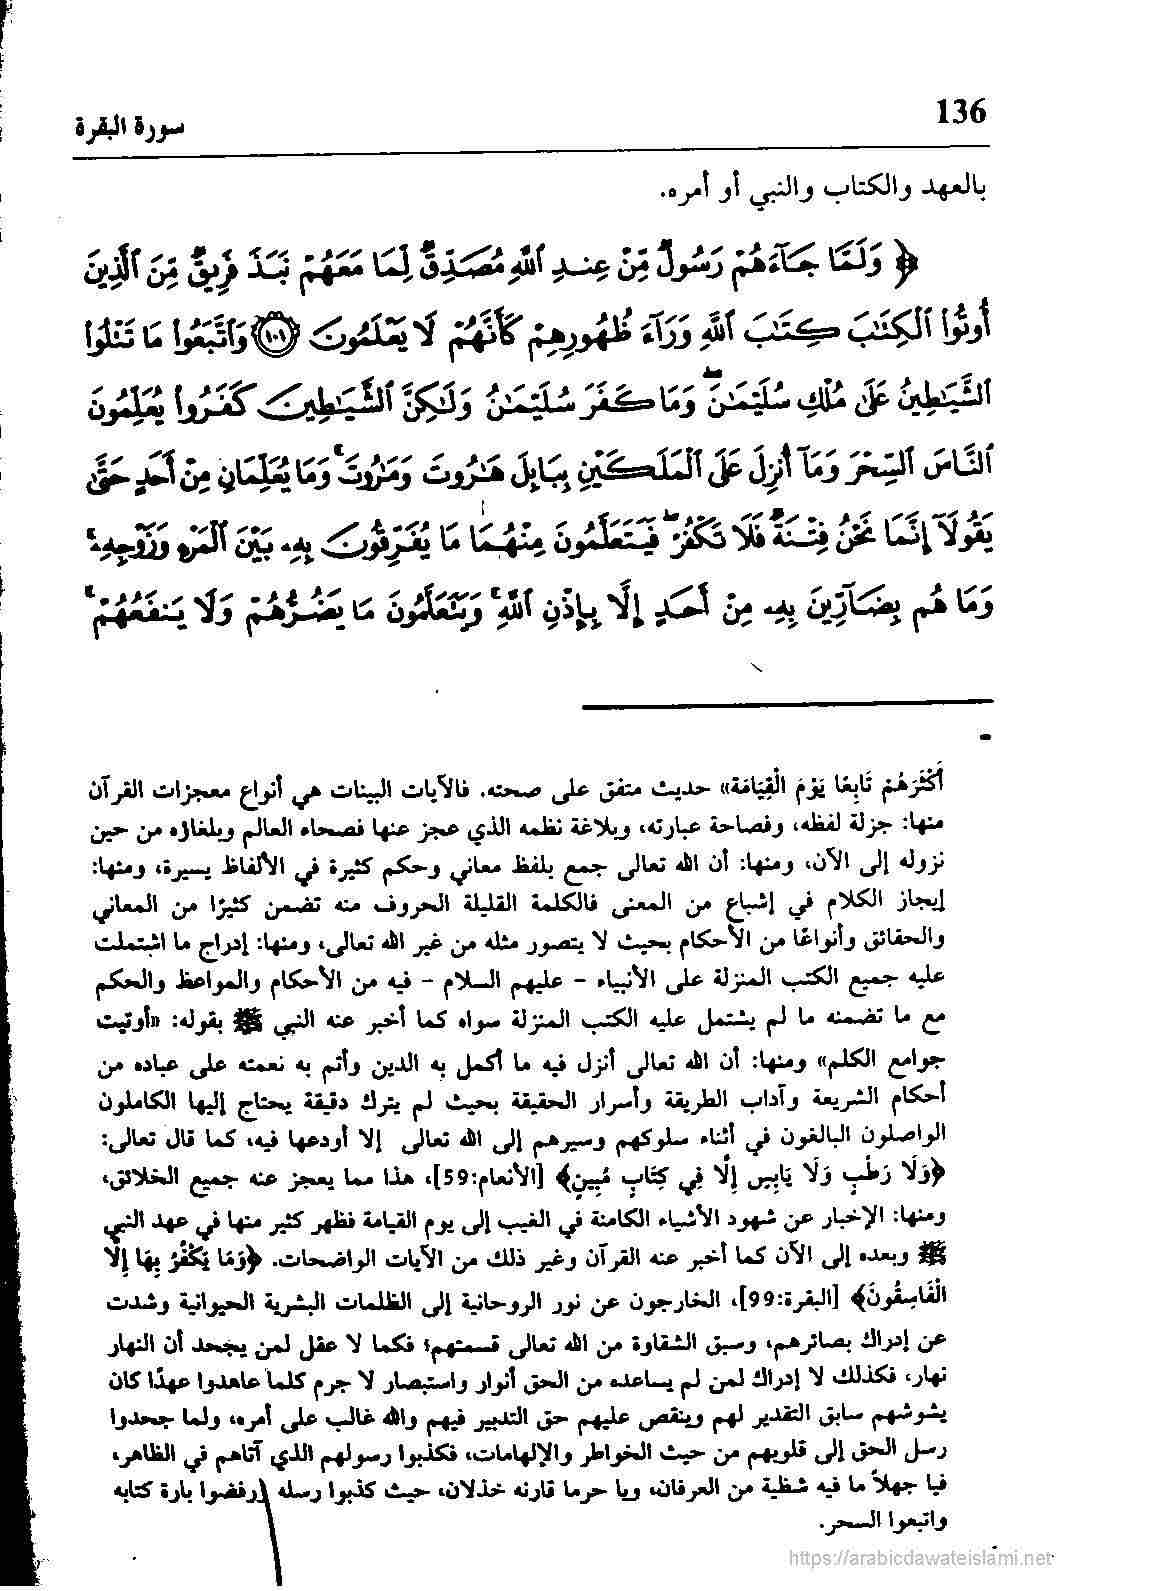 136
سورة البقرة
بالعهد والكتاب والنبي أو أمره.
﴿ وَلَمَّا جَآءَهُمْ رَسُولٌ مِّنْ عِندِ ٱللَّهِ مُصَدِّقٌ لِّمَا مَعَهُمْ نَبَذَ فَرِيقٌ مِّنَ ٱلَّذِينَ
أُوتُوا۟ ٱلْكِتَٰبَ كِتَٰبَ ٱللَّهِ وَرَآءَ ظُهُورِهِمْ كَأَنَّهُمْ لَا يَعْلَمُونَ ١٠١ وَٱتَّبَعُوا۟ مَا تَتْلُوا۟
ٱلشَّيَٰطِينُ عَلَىٰ مُلْكِ سُلَيْمَٰنَ ۖ وَمَا كَفَرَ سُلَيْمَٰنُ وَلَٰكِنَّ ٱلشَّيَٰطِينَ كَفَرُوا۟ يُعَلِّمُونَ
ٱلنَّاسَ ٱلسِّحْرَ وَمَآ أُنزِلَ عَلَى ٱلْمَلَكَيْنِ بِبَابِلَ هَٰرُوتَ وَمَٰرُوتَ ۚ وَمَا يُعَلِّمَانِ مِنْ أَحَدٍ حَتَّىٰ
يَقُولَآ إِنَّمَا نَحْنُ فِتْنَةٌ فَلَا تَكْفُرْ ۖ فَيَتَعَلَّمُونَ مِنْهُمَا مَا يُفَرِّقُونَ بِهِۦ بَيْنَ ٱلْمَرْءِ وَزَوْجِهِۦ ۚ
وَمَا هُم بِضَآرِّينَ بِهِۦ مِنْ أَحَدٍ إِلَّا بِإِذْنِ ٱللَّهِ ۚ وَيَتَعَلَّمُونَ مَا يَضُرُّهُمْ وَلَا يَنفَعُهُمْ ۚ
أَكْثَرَهُمْ تَابِعًا يَوْمَ الْقِيَامَة» حديث متفق على صحته. فالآيات البينات هي أنواع معجزات القرآن
منها: جزلة لفظه، وفصاحة عبارته، وبلاغة نظمه الذي عجز عنها فصحاء العالم وبلغاؤه من حين
نزوله إلى الآن، ومنها: أن الله تعالى جمع بلفظ معاني وحكم كثيرة في الألفاظ يسيرة، ومنها:
إيجاز الكلام في إشباع من المعنى فالكلمة القليلة الحروف منه تضمن كثيرًا من المعاني
والحقائق وأنواعًا من الأحكام بحيث لا يتصور مثله من غير الله تعالى، ومنها: إدراج ما اشتملت
عليه جميع الكتب المنزلة على الأنبياء - عليهم السلام - فيه من الأحكام والمواعظ والحكم
مع ما تضمنه ما لم يشتمل عليه الكتب المنزلة سواه كما أخبر عنه النبي ﷺ بقوله: «أوتيت
جوامع الكلم» ومنها: أن الله تعالى أنزل فيه ما أكمل به الدين وأتم به نعمته على عباده من
أحكام الشريعة وآداب الطريقة وأسرار الحقيقة بحيث لم يترك دقيقة يحتاج إليها الكاملون
الواصلون البالغون في أثناء سلوكهم وسيرهم إلى الله تعالى إلا أودعها فيه، كما قال تعالى:
﴿وَلَا رَطْبٍ وَلَا يَابِسٍ إِلَّا فِي كِتَابٍ مُبِينٍ﴾ [الأنعام:59]، هذا مما يعجز عنه جميع الخلائق،
ومنها: الإخبار عن شهود الأشياء الكامنة في الغيب إلى يوم القيامة فظهر كثير منها في عهد النبي
ﷺ وبعده إلى الآن كما أخبر عنه القرآن وغير ذلك من الآيات الواضحات. ﴿وَمَا يَكْفُرُ بِهَا إِلَّا
الْفَاسِقُونَ﴾ [البقرة:99]، الخارجون عن نور الروحانية إلى الظلمات البشرية الحيوانية وشدت
عن إدراك بصائرهم، وسبق الشقاوة من الله تعالى قسمتهم؛ فكما لا عقل لمن يجحد أن النهار
نهار، فكذلك لا إدراك لمن لم يساعده من الحق أنوار واستبصار لا جرم كلما عاهدوا عهدًا كان
يشوشهم سابق التقدير لهم وينقص عليهم حق التدبير فيهم والله غالب على أمره، ولما جحدوا
رسل الحق إلى قلوبهم من حيث الخواطر والإلهامات، فكذبوا رسولهم الذي آتاهم في الظاهر،
فيا جهلاً ما فيه شظية من العرفان، ويا حرما قارنه خذلان، حيث كذبوا رسله ورفضوا بارة كتابه
واتبعوا السحر.
https://arabicdawateislami.net